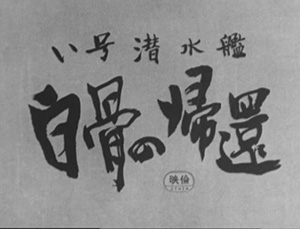 い号潜水艦
白骨の帰還
映倫